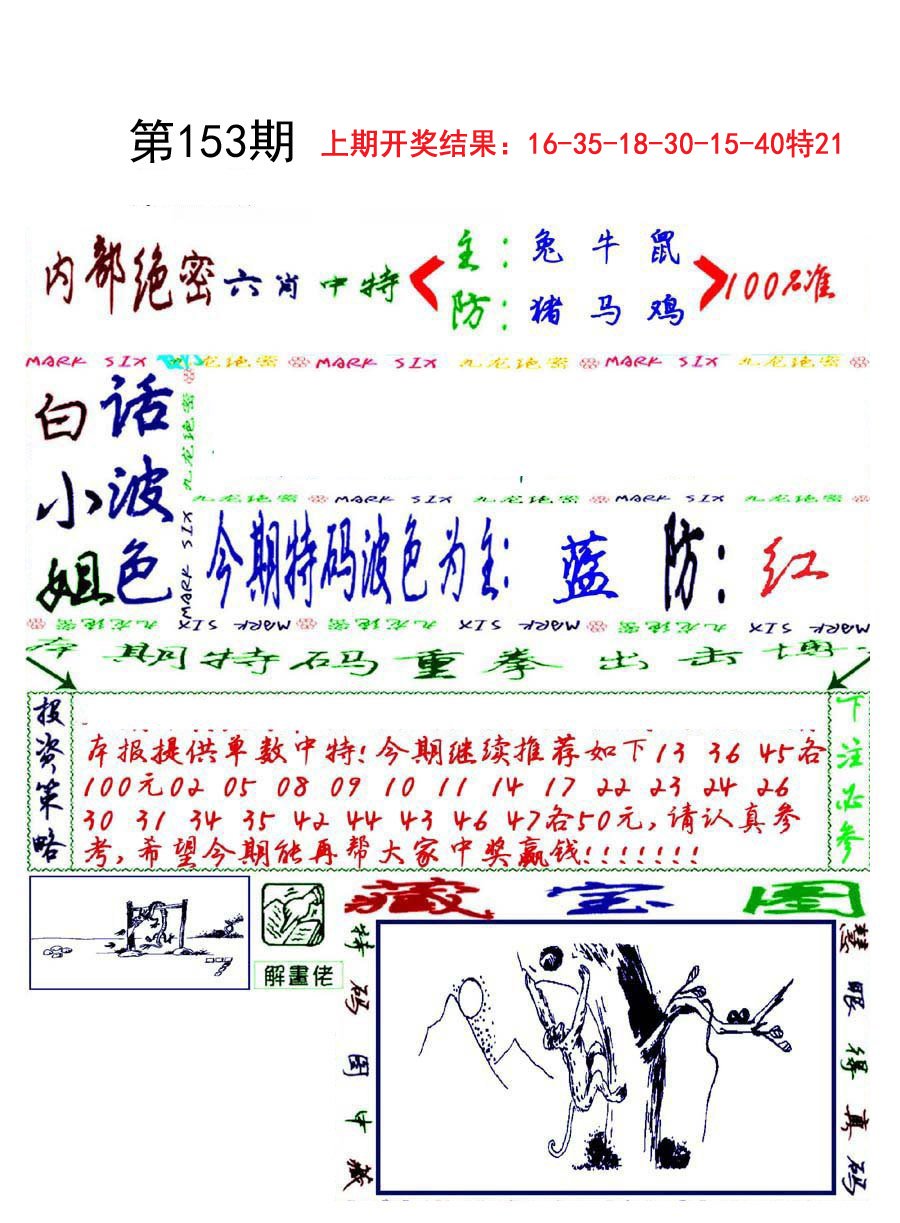 第153期 上期开奖结果：16-35-18-30-15-40特21
内部绝密六肖中特
主：兔牛鼠
防：猪马鸡
100%准
MARK SIX 九龙绝密 MARK SIX 九龙绝密 MARK SIX 九龙绝密
白小姐
话波色
九龙绝密 MARK SIX
九龙绝密 MARK SIX 九龙绝密 MARK SIX 九龙绝密
今期特码波色为主：蓝 防：红
九龙绝密 MARK SIX 九龙绝密 MARK SIX 九龙绝密 MARK SIX
本期特码重拳出击博
投资策略
本报提供单数中特!今期继续推荐如下13 36 45各
100元02 05 08 09 10 11 14 17 22 23 24 26
30 31 34 35 42 44 43 46 47各50元,请认真参
考,希望今期能再帮大家中奖赢钱!!!!!!!
下注必参
解畫佬
藏宝图
特码图中藏
慧眼得真码